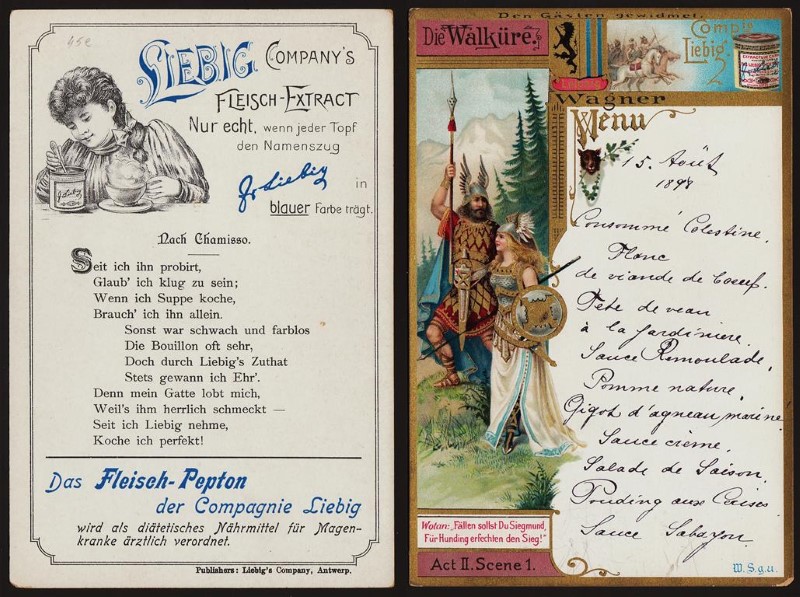 LIEBIG COMPANY'S
FLEISCH-EXTRACT
Nur echt, wenn jeder Topf
den Namenszug
JvLiebig in
blauer Farbe trägt.
Nach Chamisso.
Seit ich ihn probirt,
Glaub' ich klug zu sein;
Wenn ich Suppe koche,
Brauch' ich ihn allein.
Sonst war schwach und farblos
Die Bouillon oft sehr,
Doch durch Liebig's Zuthat
Stets gewann ich Ehr'.
Denn mein Gatte lobt mich,
Weil's ihm herrlich schmeckt —
Seit ich Liebig nehme,
Koche ich perfekt!
Das Fleisch-Pepton
der Compagnie Liebig
wird als diätetisches Nährmittel für Magen-
kranke ärztlich verordnet.
Publishers: Liebig's Company, Antwerp.
Den Gästen gewidmet
Die Walküre.
Compie
Liebig
Wagner
Menu
15. Août
1898
Consommé Celestine.
Flanc
de viande de boeuf.
Tête de veau
à la jardinière.
Sauce Remoulade,
Pomme nature,
Gigot d'agneau mariné
Sauce crème.
Salade de Saison.
Pouding aux Cerises
Sauce Sabayon.
Wotan: „Fällen sollst Du Siegmund,
Für Hunding erfechten den Sieg!"
Act II. Scene 1.
W. S. g. u.